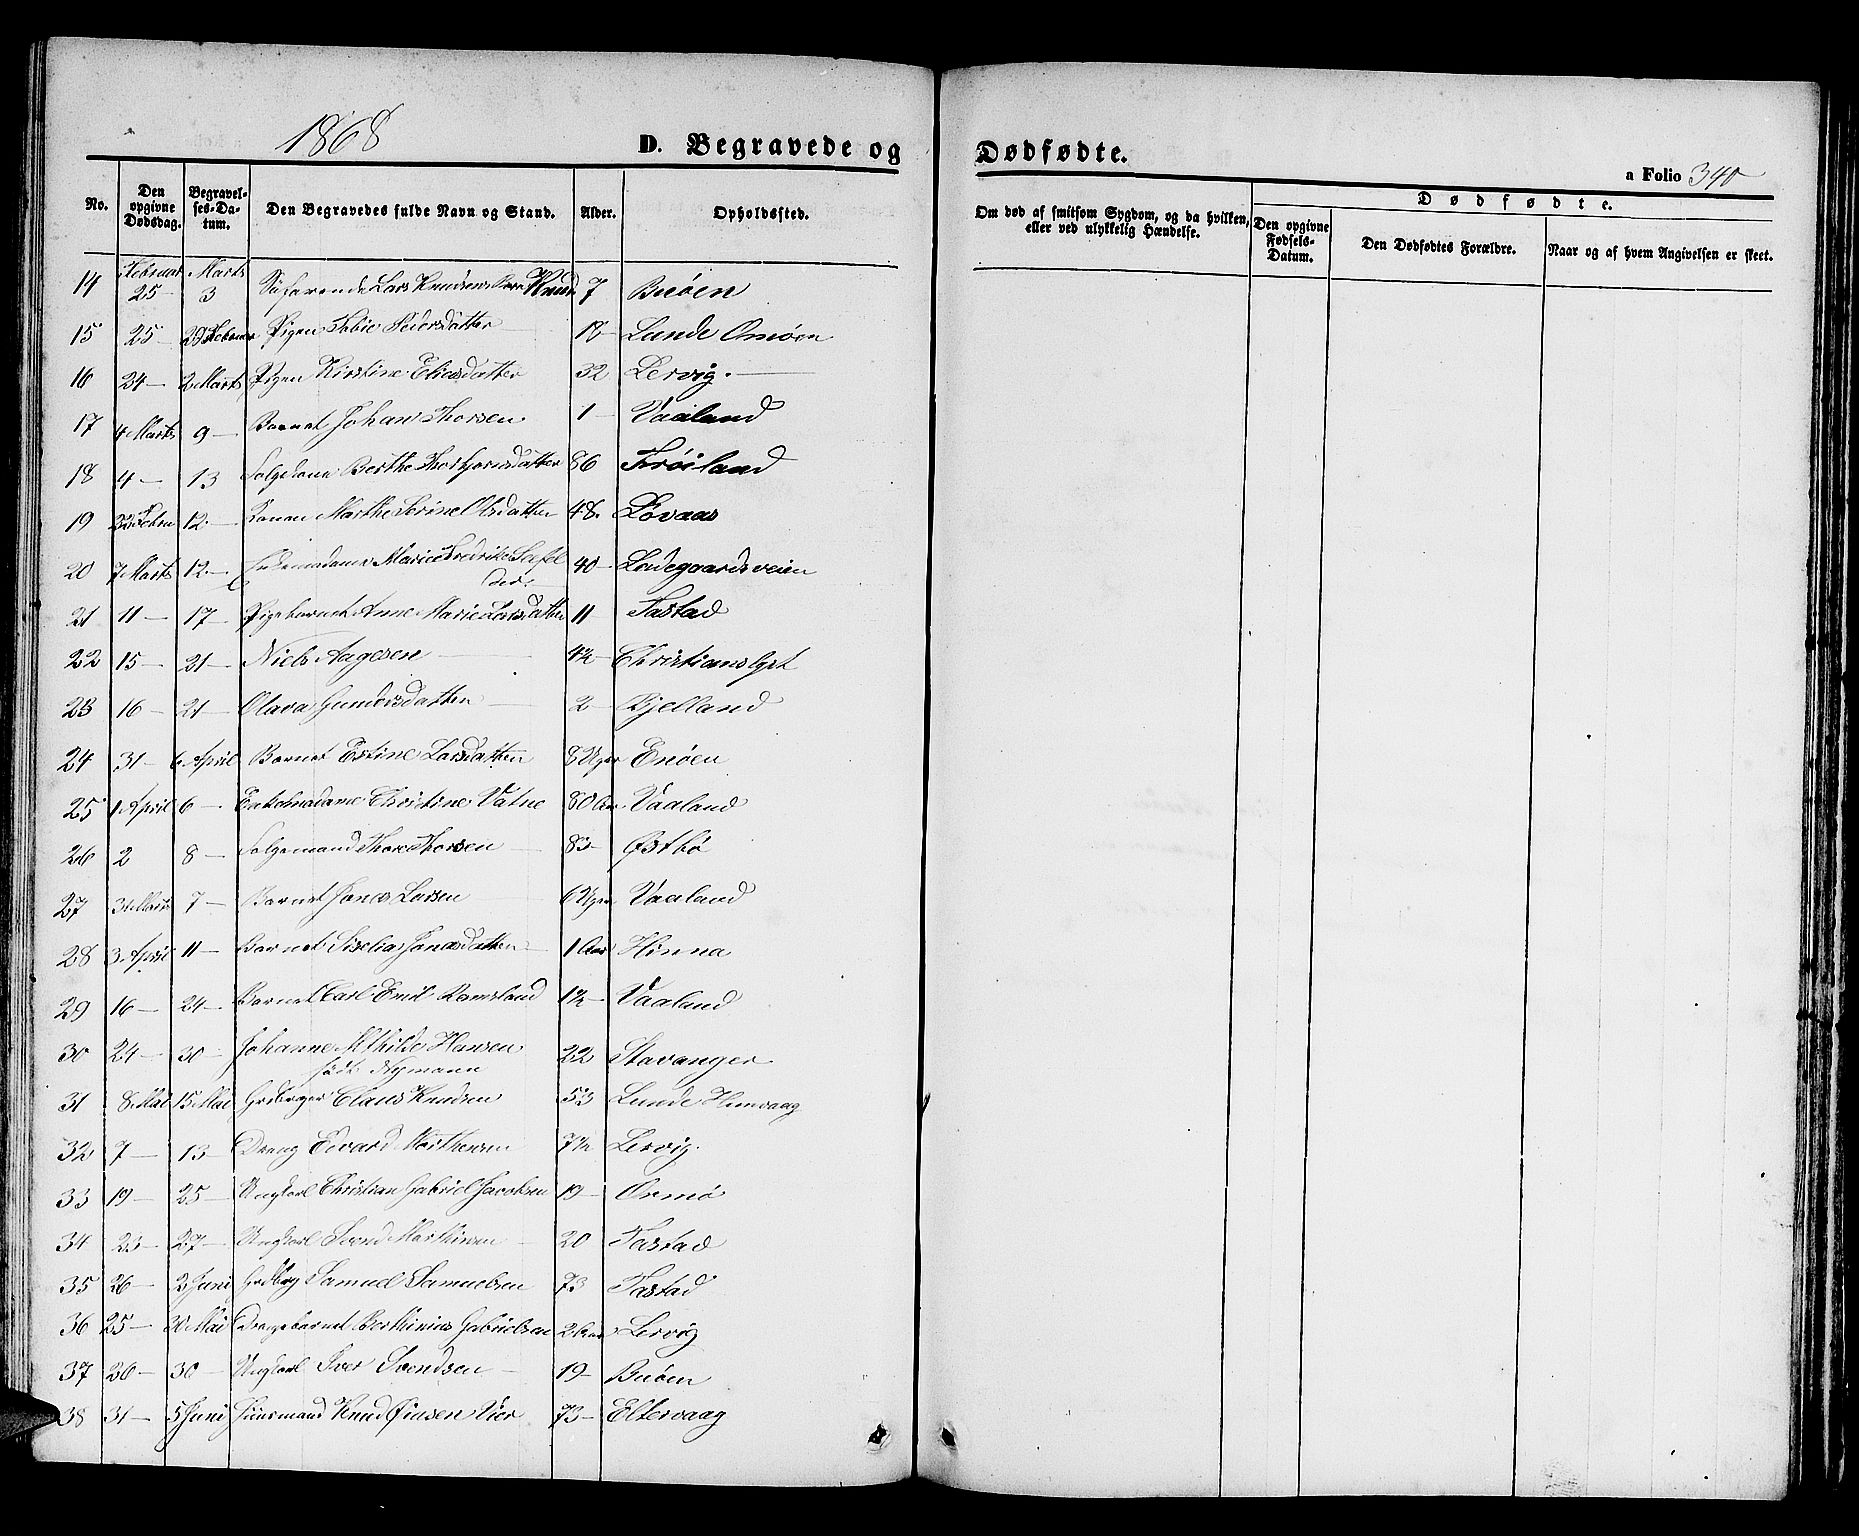 1868
D. Begravede og Dødfødte.
a Folio 340
No. Den opgivne Dødsdag. Begravelses-Datum. Den Begravedes fulde Navn og Stand. Alder. Opholdsted. Om død af smitsom Sygdom, og da hvilken, eller ved ulykkelig Hændelse. Dødfødte. Den opgivne Fødsels-Datum. Den Dødfødtes Forældre. Naar og af hvem Angivelsen er skeet.
14 Februar 25 Marts 3 Søfarende Lars Knudsens Barn Knud 7 Buøen
15 25 29 Februar Pigen Pedersdatter 18 Lunde Omøen
16 24 2 Marts Pigen Kirstine Eliasdatter 32 Lervig.
17 4 Marts 9 Barnet Johan Thorsen 1 Vaaland
18 4 13 Berthe Thorbjørnsdatter 86 Frøiland
19 22 Febru 12 Konen Marthe Serine Olsdatter 48. Lovaas
20 7 Marts 12 Marie Fredrikke 40 Ladegaardsveien
21 11 17 Pigebarnet Anne Marie Larsdatter 11 Tastad
22 15 21 Niels Aagesen 4½ Christianslyst
23 16 21 Olava Gundersdatter 2 Kjelland
24 31 6 April Barnet Estine Larsdatter 8 Uger Enøen
25 1 April 6 Enkemadame Christine Vatne 80 Aar Vaaland
26 2 8 Thore Thorsen 83 Østbø
27 31 Marts 7 Barnet Jonas Larsen 6 Uger Vaaland
28 3 April 11 Barnet Siselia Jonasdatter 1 Aar Hinna
29 16 24 Barnet Carl Emil Ramsland 1½ Vaaland
30 24 30 Johanne Mthilde Hansen 22 Stavanger
født Nymann
31 8 Mai 15 Mai Grdbrger Claus Knudsen 53 Lunde Hunvaag
32 7 13 Dreng Edvard Marthensen 7½ Lervig.
33 19 25 Ungkarl Christian Gabriel Jacobsen 19 Ormø
34 23 27 Ungkarl Svend Marthinsen 20 Tastad
35 26 2 Juni Grdbrg Samuel Samuelsen 73 Tastad
36 25 30 Mai Drengebarnet Berthinius Gabrielsen 2 Aar Lervig
37 20 30 Ungkarl Iver Svendsen 19 Buøen
38 31 5 Juni Huusmand Knud Vier 73 Eltervaag